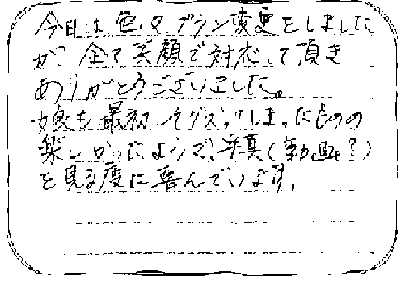 今日は色々プラン変更をしました
が、全て笑顔で対応して頂き
ありがとうございました。
娘も最初そグズってしまったものの
楽しかったようで、写真(動画も?)
を見る度に喜んでいます。